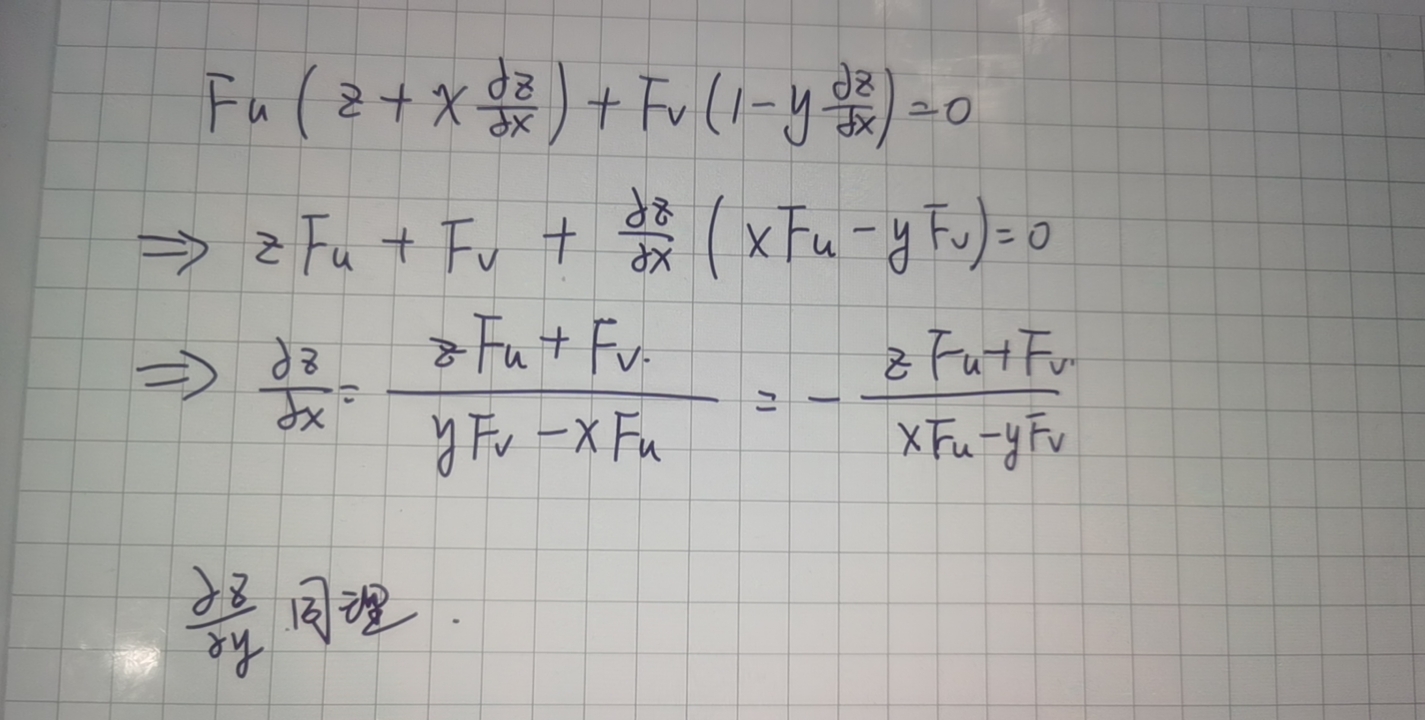 Fu ( z + x ∂z/∂x ) + Fv ( 1 - y ∂z/∂x ) = 0
⇒ z Fu + Fv + ∂z/∂x ( x Fu - y Fv ) = 0
⇒ ∂z/∂x = (z Fu + Fv.)/(y Fv - x Fu) = - (z Fu + Fv.)/(x Fu - y Fv)
∂z/∂y 同理 .